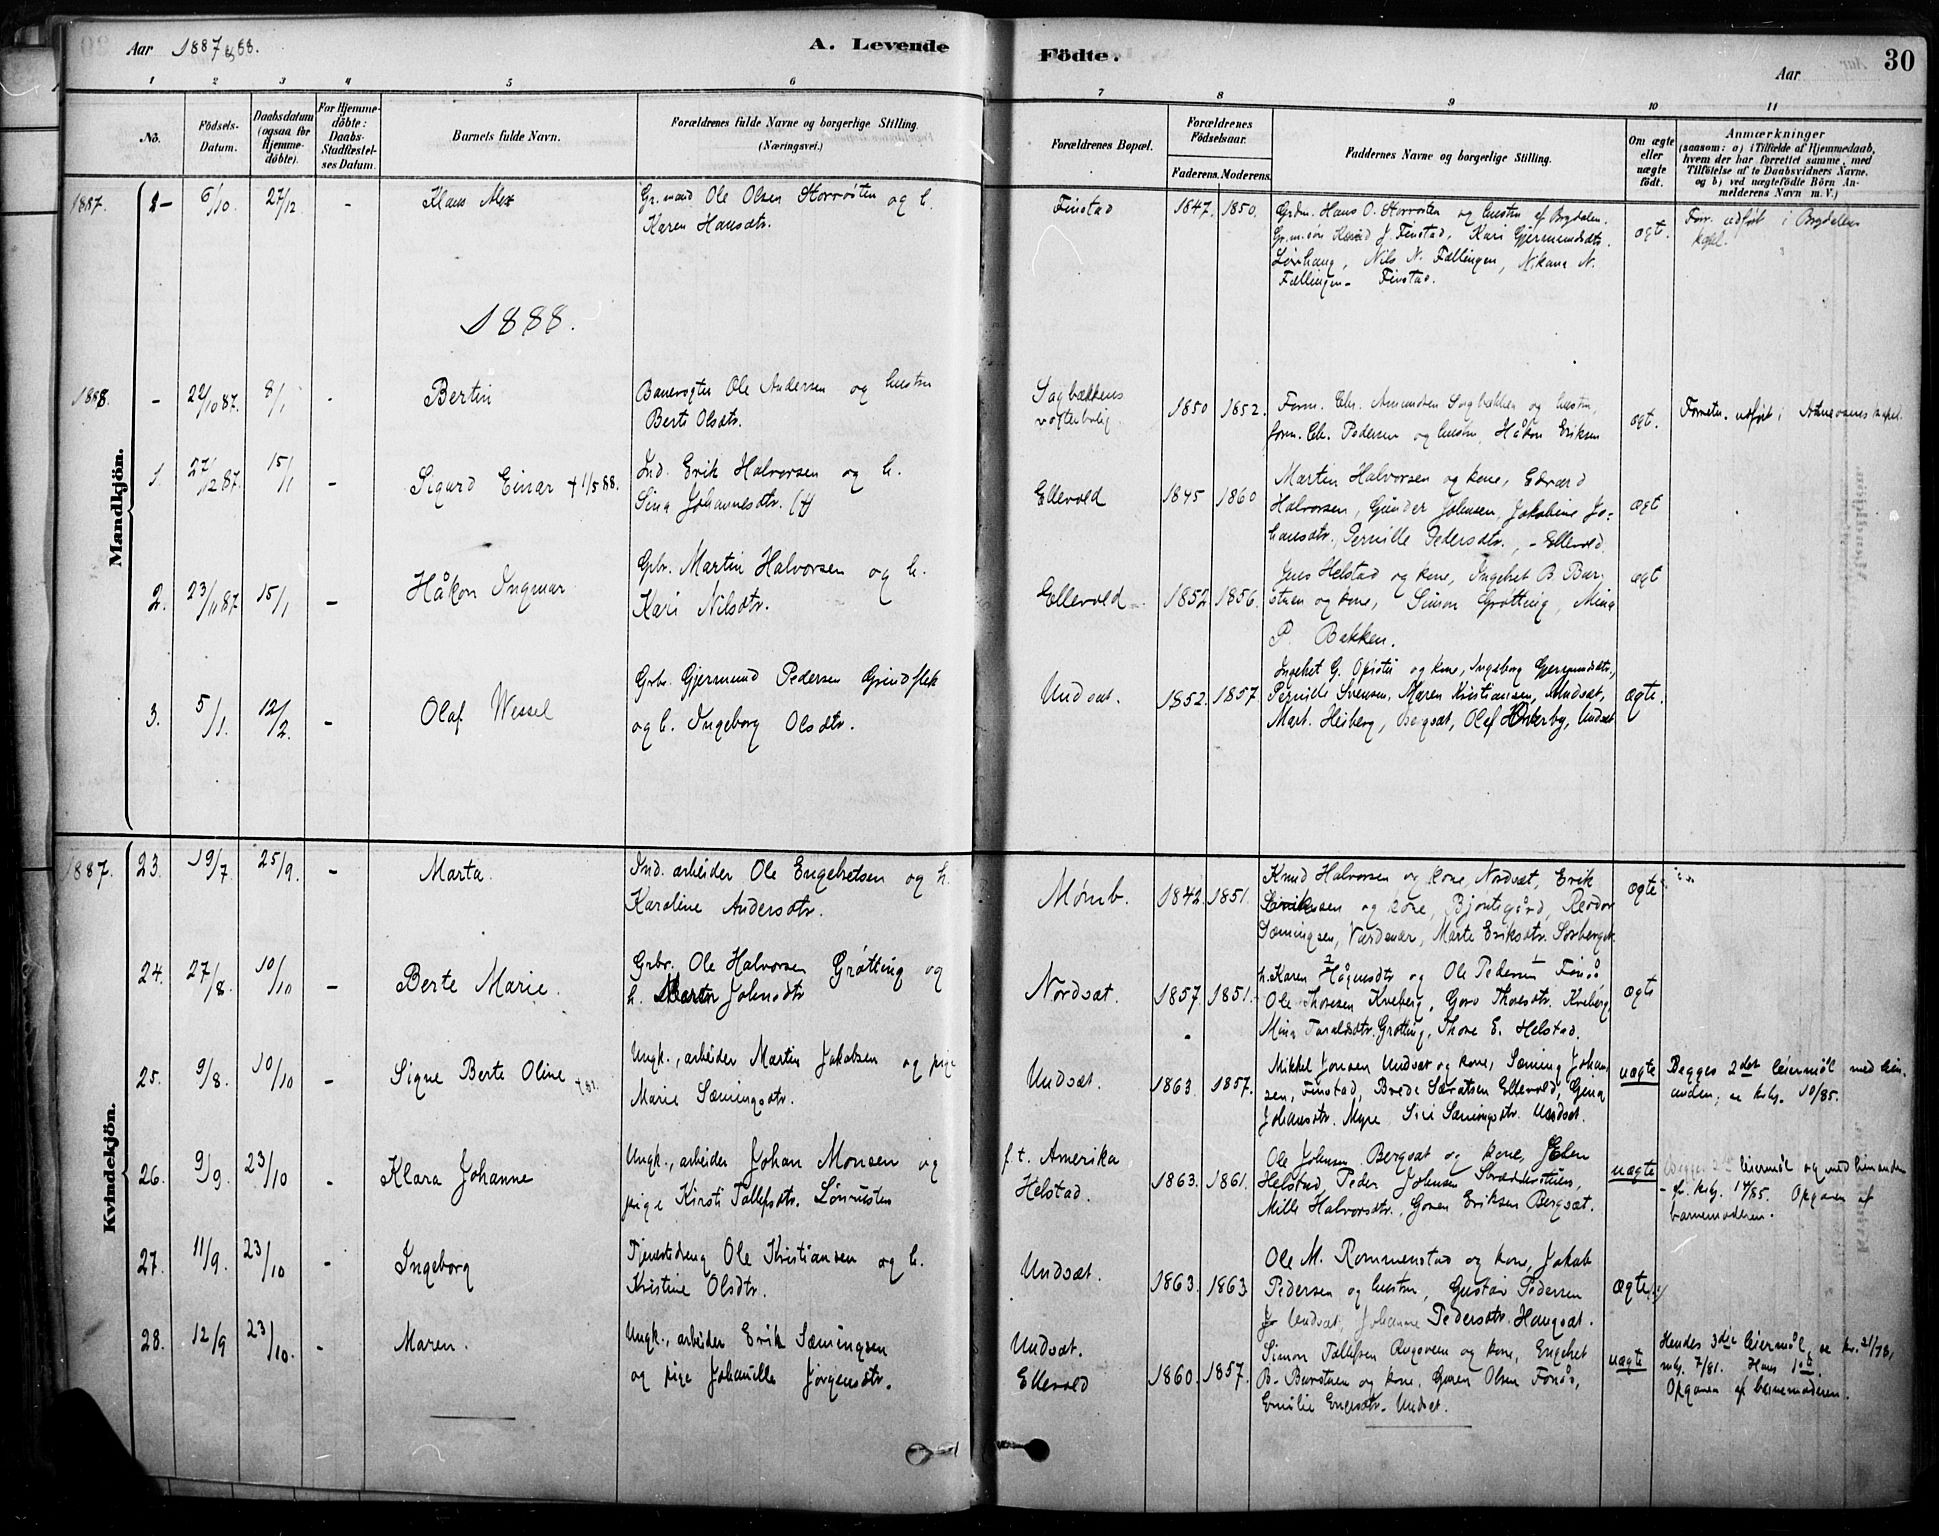 Aar 1887 & 88.
A. Levende
Födte.
Aar
30
1 2 3 4 5 6 7 8 9 10 11
No.
Födsels-
Datum.
Daabsdatum
(ogsaa for
Hjemme-
döbte).
For Hjemme-
döbte:
Daabs-
Stadfæstel-
ses Datum.
Barnets fulde Navn.
Forældrenes fulde Navne og borgerlige Stilling.
(Næringsvei.)
Forældrenes Bopæl.
Forældrenes
Födselsaar.
Faderens. Moderens.
Faddernes Navne og borgerlige Stilling.
Om ægte
eller
uægte
födt.
Anmærkninger
(saasom: a) i Tilfælde af Hjemmedaab,
hvem der har forrettet samme, med
Tilföielse af to Daabsvidners Navne.
og b) ved uægtefödte Börn An-
melderens Navn m. V.)
Mandkjön.
1887. 6/10. 27/12 - Klaus
Gr.mand Ole Olsen og h.
Karen Hansdtr.
Finstad 1847. 1850.
Grdm. Hans O. og hustru af Brydalen.
J. Finstad, Kari Gjermundsdtr.
Nils N. Fællingen, N.
Fællingen - Finstad.
ægt.
Forr. udført i Brydalens
kapel.
1888.
1888. - 22/10 87. 8/1 - Bertin
Banevogter Ole Andersen og hustru
Berte Olsdtr.
Sagbækkens
vogterbolig.
1850 1852.
Form. Chr. Amundsen Sagbækken og hustru,
form. Chr. Pedersen og hustru, Håkon Eriksen
ægt.
Forretn. udført i kapel.
1. 27/12 87. 15/1 - Sigurd Einar + 1/5 88.
Ind. Erik Halvorsen og h.
Sina Johannesdtr.
Ellevold 1845 1860
Martin Halvorsen og kone, Edvard
Halvorsen, Gunder Johnsen, Jakobine Jo-
hansdtr. Pernille Pedersdtr., - Ellevold.
ægt
2. 23/11 87. 15/1 - Håkon Ingmar
Gbr. Martin Halvorsen og h.
Kari Nilsdtr.
Ellevold - 1852 1856.
Jens Helstad og kone, Ingebret B. Bur-
stuen og kone, Simon Grøtting, Mina
P. Bakken.
ægt
3. 5/1. 12/2. - Olaf Wessel
Grbr. Gjermund Pedersen Grindflek
og h. Ingeborg Olsdtr.
Undset. 1852. 1857
Ingebret G. og kone, Ingeborg Gjermundsdtr.,
Pernille Svensen, Maren Kristiansen, Undsæt,
Mart. Heiberg, Bergsæt, Olaf Undset
ægte.
Kvindekjön.
1887. 23. 19/7 25/9. - Marta.
Ind. arbeider Ole Engebretsen og h.
Karoline Andersdtr.
Mømb. 1842. 1851.
Knud Halvorsen og kone, Nordsæt, Erik
Eriksen og kone, Bjontegård, Reidar
Sæmingsen, Marte Eriksdtr. Sorberget.
ægte
24. 27/8. 10/10 - Berte Marie.
Grbr. Ole Halvorsen Grøtting og
h. Maren Johnsdtr
Nordsæt. 1857. 1851.
h. Karen Hågensdtr og Ole Pedersen Fonås
Ole Thoresen Kveberg, Goro Thoresdtr. Kveberg,
Mina Taraldsdtr. Grøtting, Thore E. Helstad.
ægte
25. 9/8. 10/10 - Signe Berte Oline
Ungk., arbeider Martin Jakobsen og pige
Marie Sæmingsdtr.
Undsæt. 1863 1857.
Mikkel Jonsen Undsæt og kone, Sæming Johan-
sen, Finstad, Brede Ellevold, Gina
Johansdtr. Myre, Siri Sæmingsdtr. Undset.
uægte
Begges 2det leiermål med hin-
anden, se kirkebog. 10/85.
26. 9/9. 23/10 - Klara Johanne
Ungk., arbeider Johan Monsen og
pige Kirsti Tollefsdtr. Lønrusten
f. t. Amerika
Helstad. 1863. 1861.
Ole Johnsen Bergsæt og kone, Elen
Helstad, Peder Johnsen
Mille Halvorsdtr., Goren Eriksen Bergsæt.
uægte
Begges 2det leiermål og med hinanden
- cfr. kirkebog. 14/85. Opgaven af
barnemoderen.
27. 11/9. 23/10 - Ingeborg
Tjenestedreng Ole Kristiansen og h.
Kristine Olsdtr.
Undsæt. 1863. 1863
Ole M. Rommenstad og kone, Jakob
Pedersen og hustru, Gustav Pedersen
Undsæt, Johanne Pedersdtr. Haugsæt.
Ægte
28. 12/9 23/10. - Maren.
Ungk., arbeider Erik Sæmingsen
og pige Johanille Jørgensdtr.
Undsæt.
Ellevold 1860. 1857.
Simon Tollefsen og kone, Engebret
B. Burstuen og kone, Goren Olsen Fonås,
Emilie Undset.
uægte
Hendes 3die leiermål, se 21/78,
7/81. Hans 1ste.
Opgaven af barnemoderen.